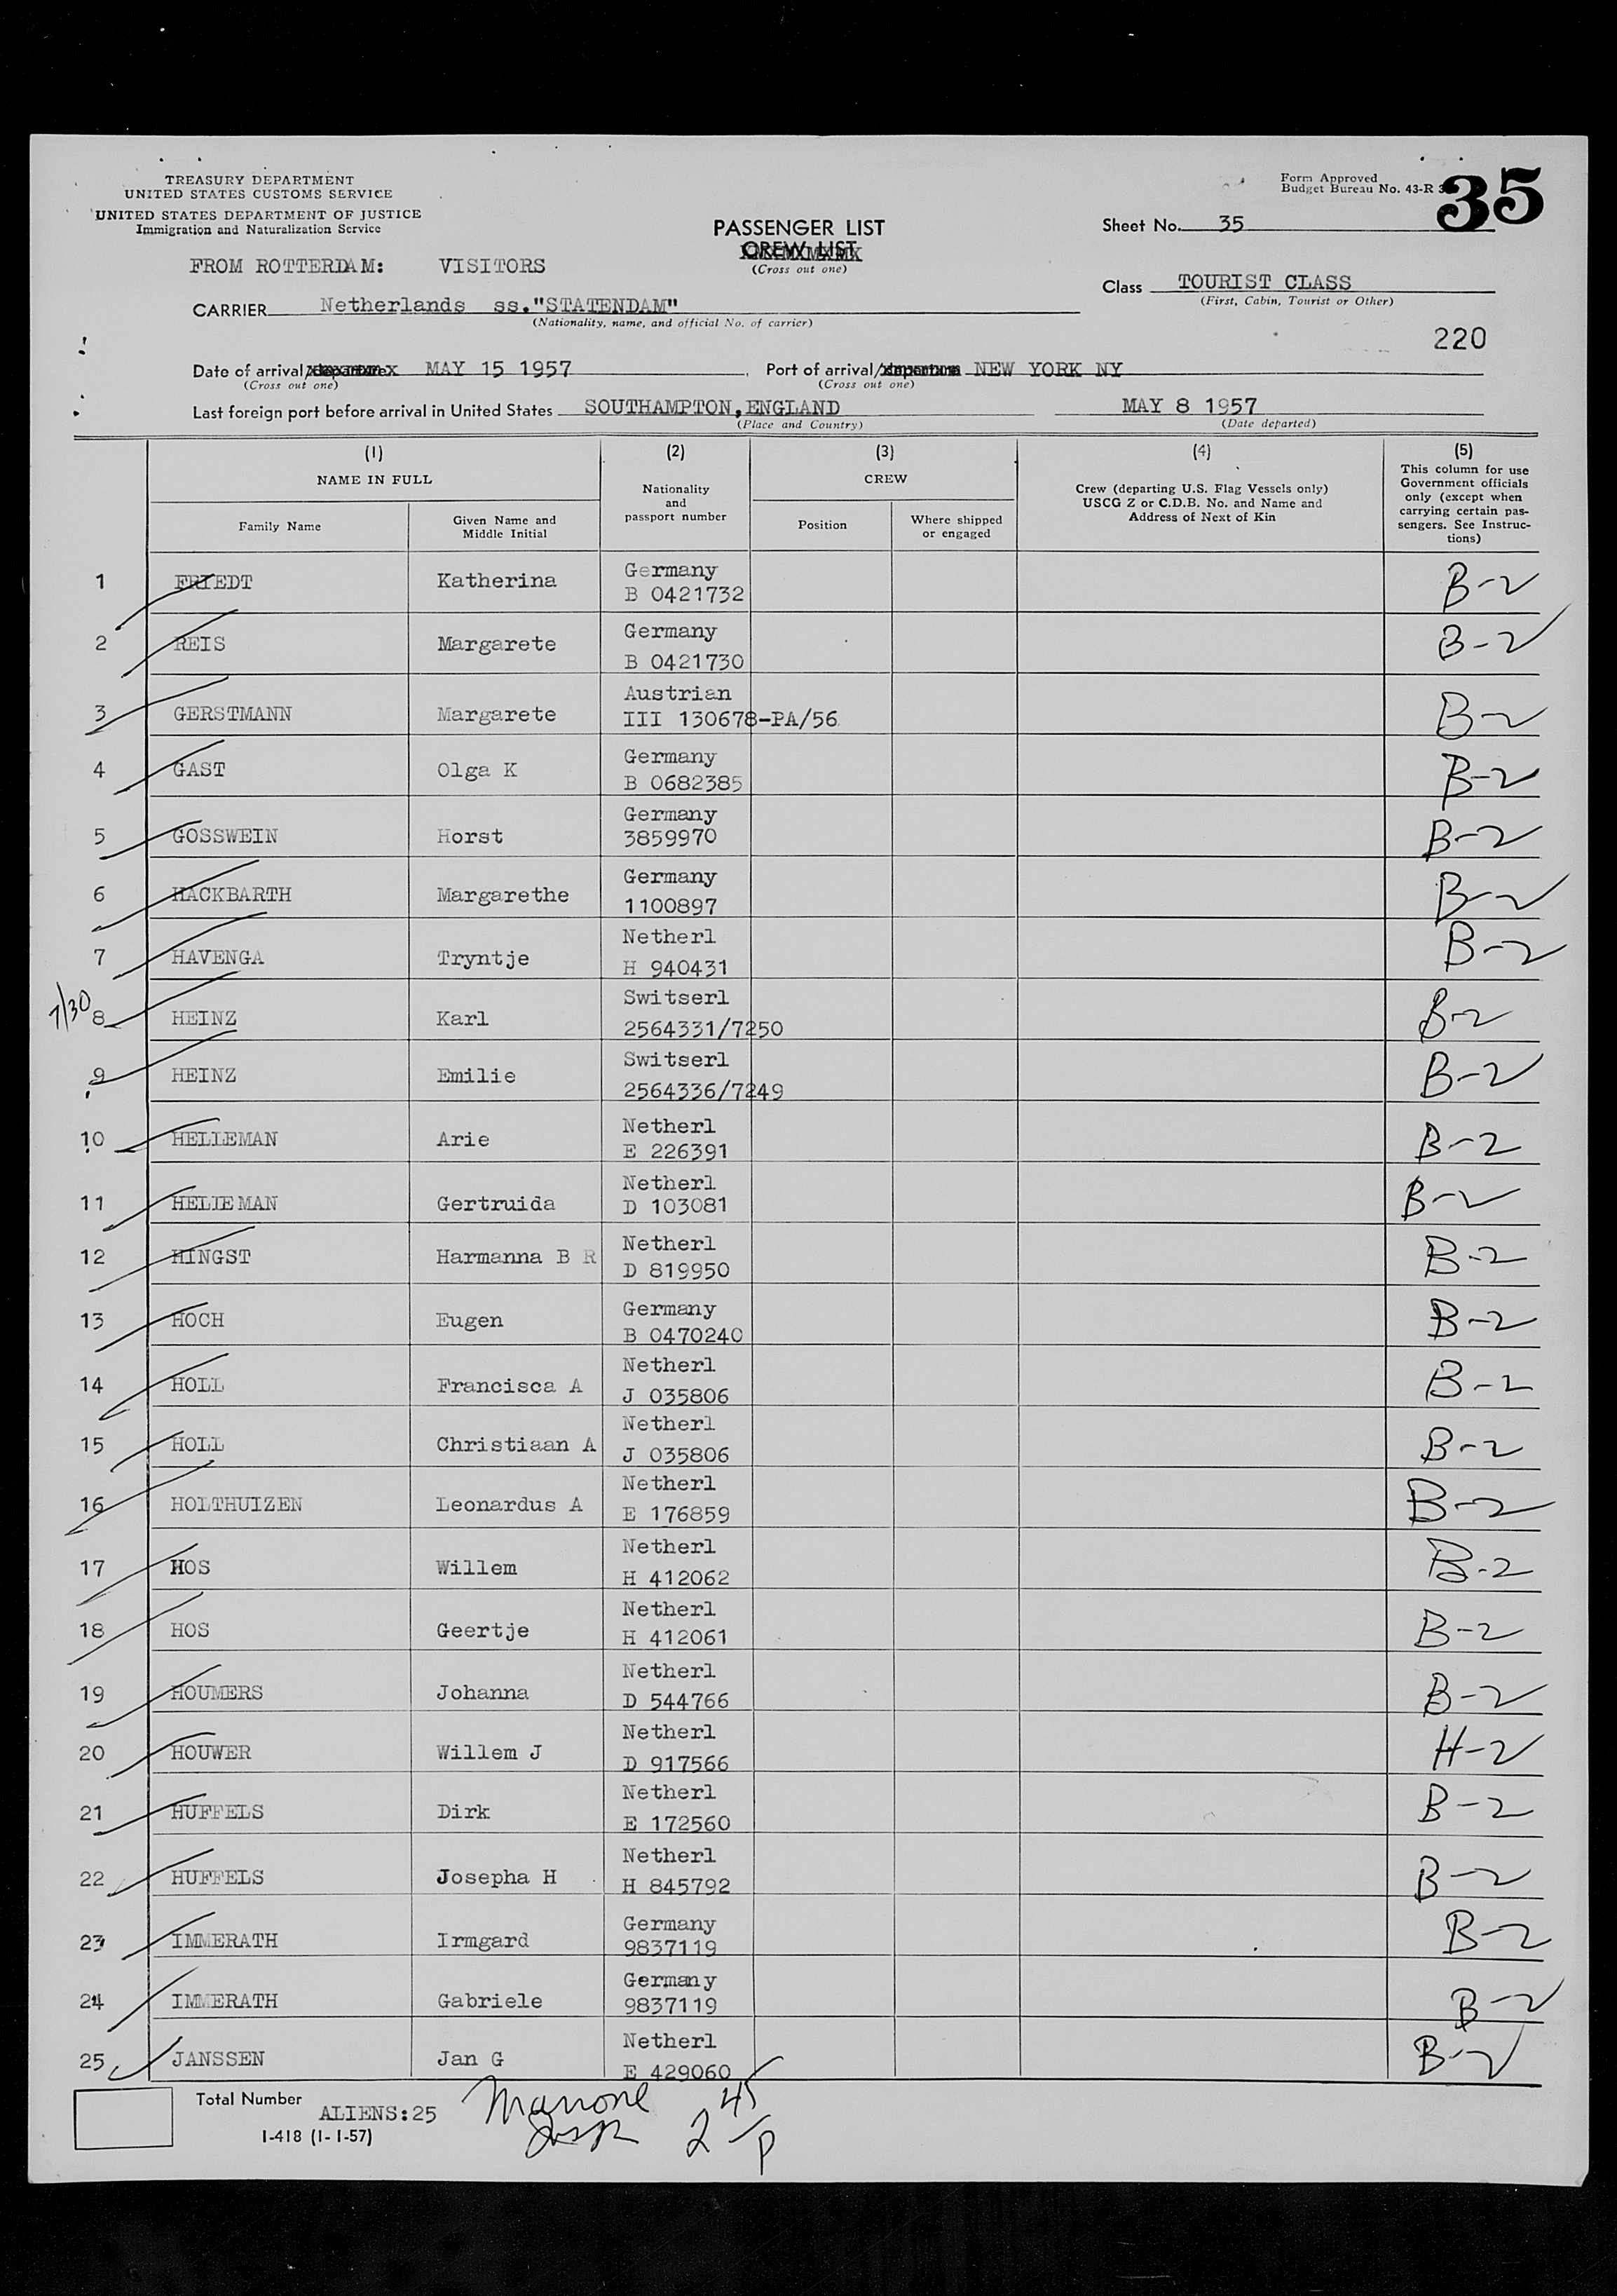 TREASURY DEPARTMENT
UNITED STATES CUSTOMS SERVICE
UNITED STATES DEPARTMENT OF JUSTICE
Immigration and Naturalization Service
Form Approved
Budget Bureau No. 43-R
35
PASSENGER LIST
CREW LIST
(Cross out one)
Sheet No. 35
FROM ROTTERDAM: VISITORS
Class TOURIST CLASS
(First, Cabin, Tourist or Other)
CARRIER Netherlands ss."STATENDAM"
(Nationality, name, and official No. of carrier)
220
Date of arrival/departure MAY 15 1957
(Cross out one)
Port of arrival/departure NEW YORK NY
(Cross out one)
Last foreign port before arrival in United States SOUTHAMPTON, ENGLAND MAY 8 1957
(Place and Country) (Date departed)
(1) (2) (3) (4) (5)
NAME IN FULL
Family Name
Given Name and
Middle Initial
Nationality
and
passport number
CREW
Position
Where shipped
or engaged
Crew (departing U.S. Flag Vessels only)
USCG Z or C.D.B. No. and Name and
Address of Next of Kin
This column for use
Government officials
only (except when
carrying certain pas-
sengers. See Instruc-
tions)
1 FRIEDT Katherina Germany B-2
B 0421732
2 REIS Margarete Germany B-2
B 0421730
3 GERSTMANN Margarete Austrian B-2
III 130678-PA/56
4 GAST Olga K Germany B-2
B 0682385
5 GOSSWEIN Horst Germany B-2
3859970
6 HACKBARTH Margarethe Germany B-2
1100897
7 HAVENGA Tryntje Netherl B-2
H 940431
7/30
8 HEINZ Karl Switserl B-2
2564331/7250
9 HEINZ Emilie Switserl B-2
2564336/7249
10 HELLEMAN Arie Netherl B-2
E 226391
11 HELLEMAN Gertruida Netherl B-2
D 103081
12 HINGST Harmanna B R Netherl B-2
D 819950
13 HOCH Eugen Germany B-2
B 0470240
14 HOLL Francisca A Netherl B-2
J 035806
15 HOLL Christiaan A Netherl B-2
J 035806
16 HOLTHUIZEN Leonardus A Netherl B-2
E 176859
17 HOS Willem Netherl B-2
H 412062
18 HOS Geertje Netherl B-2
H 412061
19 HOUMERS Johanna Netherl B-2
D 544766
20 HOUWER Willem J Netherl H-2
D 917566
21 HUFFELS Dirk Netherl B-2
E 172560
22 HUFFELS Josepha H Netherl B-2
H 845792
23 IMMERATH Irmgard Germany B-2
9837119
24 IMMERATH Gabriele Germany B-2
9837119
25 JANSSEN Jan G Netherl B-2
E 429060
Total Number ALIENS:25
I-418 (1-1-57)
2 45 P